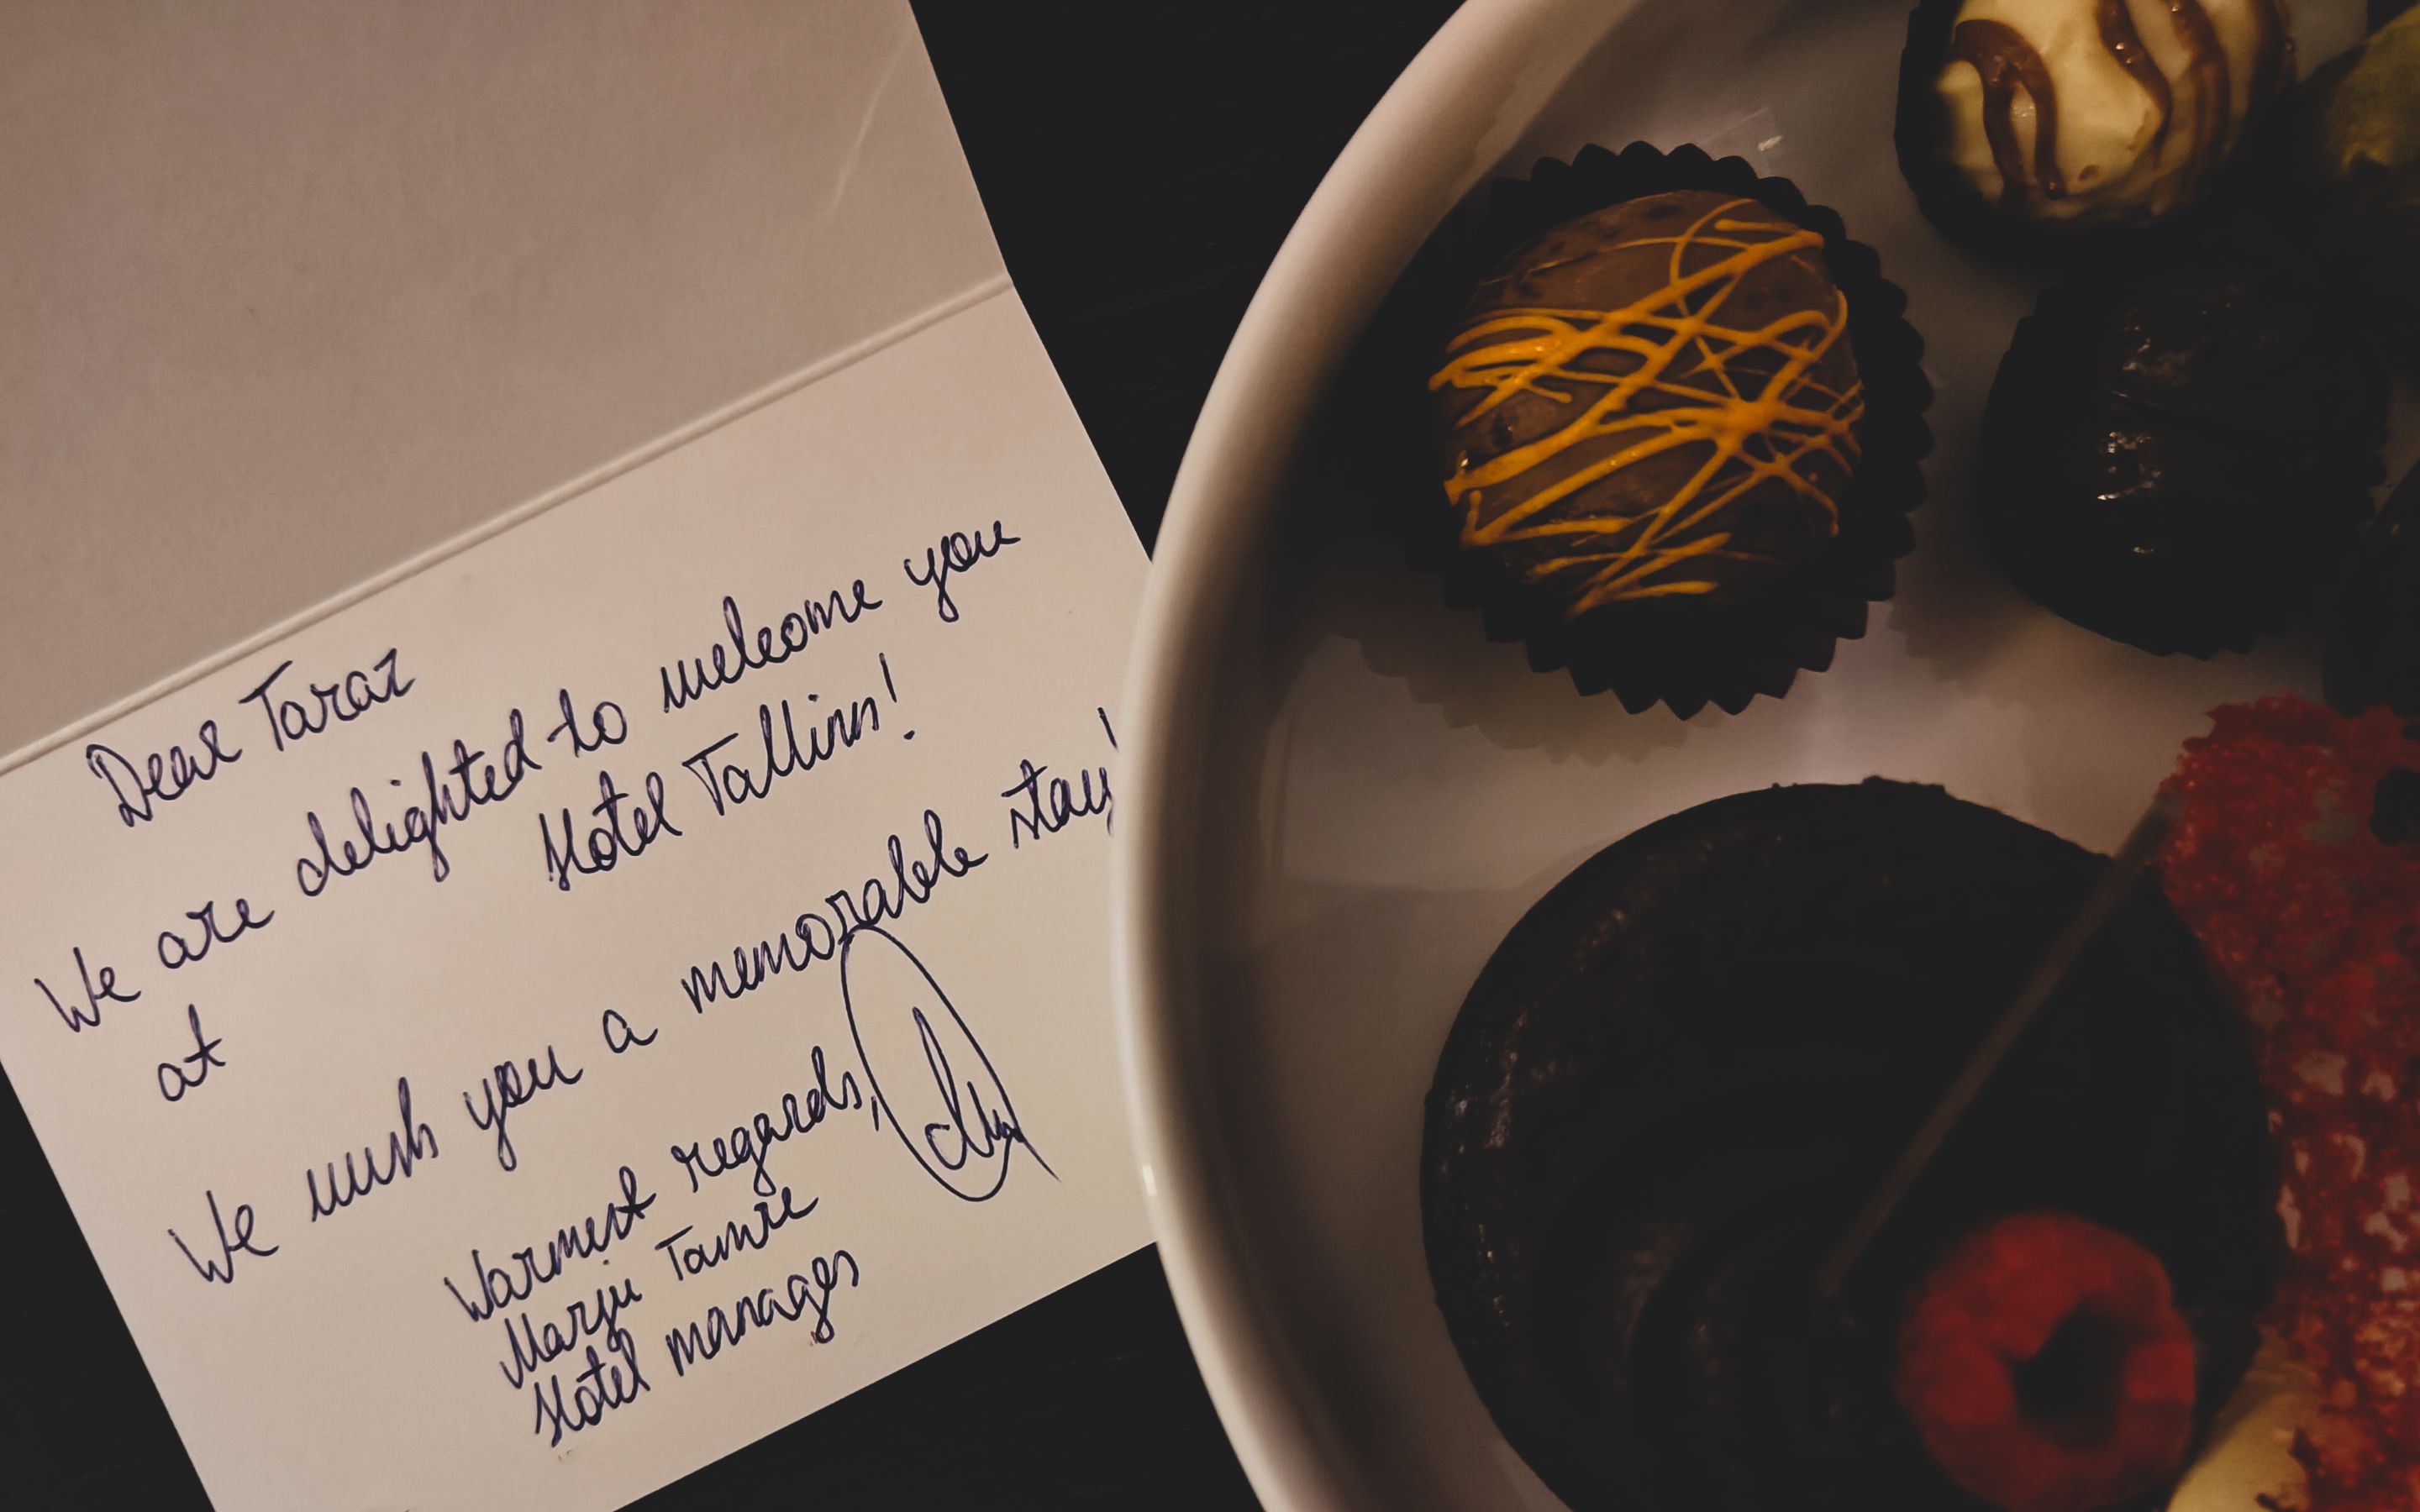 Dear Taraz
We are delighted to welcome you
at Hotel Tallinn!
We wish you a memorable stay!
Warmest regards,
Marju Tamre
Hotel manager